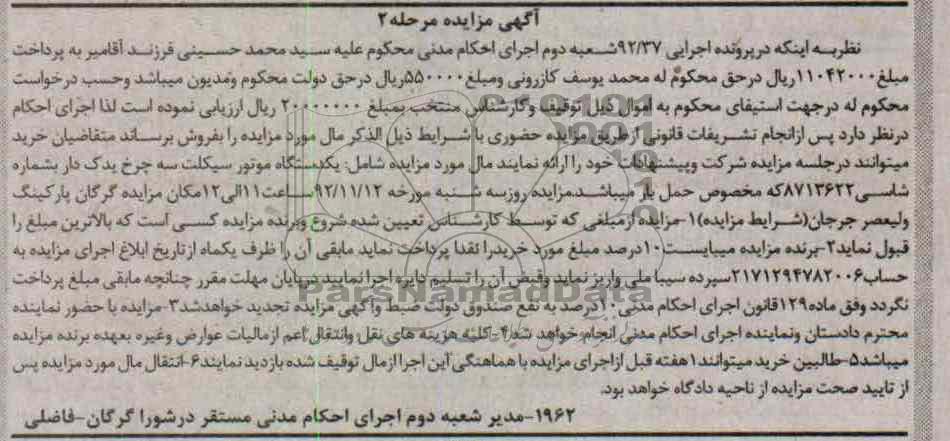 آگهی مزایده مرحله۲
نظربه اینکه درپرونده اجرایی ۹۲/۳۷شعبه دوم اجرای احکام مدنی محکوم علیه سید محمد حسینی فرزند آقامیر به پرداخت
مبلغ۱۱۰۴۲۰۰۰ریال درحق محکوم له محمد یوسف کازرونی ومبلغ۵۵۰۰۰۰ریال درحق دولت محکوم ومدیون میباشد وحسب درخواست
محکوم له درجهت استیفای محکوم به اموال ذیل توقیف وکارشناس منتخب بمبلغ ۲۰۰۰۰۰۰۰ ریال ارزیابی نموده است لذا اجرای احکام
درنظر دارد پس ازانجام تشریفات قانونی ازطریق مزایده حضوری با شرایط ذیل الذکر مال مورد مزایده را بفروش برساند متقاضیان خرید
میتوانند درجلسه مزایده شرکت وپیشنهادات خود را ارائه نمایند مال مورد مزایده شامل: یکدستگاه موتور سیکلت سه چرخ یدک دار بشماره
شاسی۸۷۱۳۶۲۲که مخصوص حمل بار میباشد.مزایده روزسه شنبه مورخه ۹۲/۱۱/۱۲ساعت۱۱الی۱۲مکان مزایده گرگان پارکینگ
ولیعصر جرجان(شرایط مزایده)۱-مزایده ازمبلغی که توسط کارشناس تعیین شده شروع وبرنده مزایده کسی است که بالاترین مبلغ را
قبول نماید۲-برنده مزایده میبایست۱۰درصد مبلغ مورد خریدرا نقدا پرداخت نماید مابقی آن را ظرف یکماه ازتاریخ ابلاغ اجرای مزایده به
حساب۲۱۷۱۲۹۴۷۸۲۰۰۶سپرده سیبا ملی واریز نماید وقبض آن را تسلیم دایره اجرا نمایید درپایان مهلت مقرر چنانچه مابقی مبلغ پرداخت
نگردد وفق ماده۱۲۹قانون اجرای احکام مدنی۱۰درصد به نفع صندوق دولت ضبط وآگهی مزایده تجدید خواهدشد۳-مزایده با حضور نماینده
محترم دادستان ونماینده اجرای احکام مدنی انجام خواهد شد۴-کلیه هزینه های نقل وانتقال اعم ازمالیات عوارض وغیره بعهده برنده مزایده
میباشد۵-طالبین خرید میتوانند۱هفته قبل ازاجرای مزایده با هماهنگی این اجرا ازمال توقیف شده بازدید نمایند۶-انتقال مال مورد مزایده پس
از تایید صحت مزایده از ناحیه دادگاه خواهد بود.
۱۹۶۲-مدیر شعبه دوم اجرای احکام مدنی مستقر درشورا گرگان-فاضلی
ParsNamadData